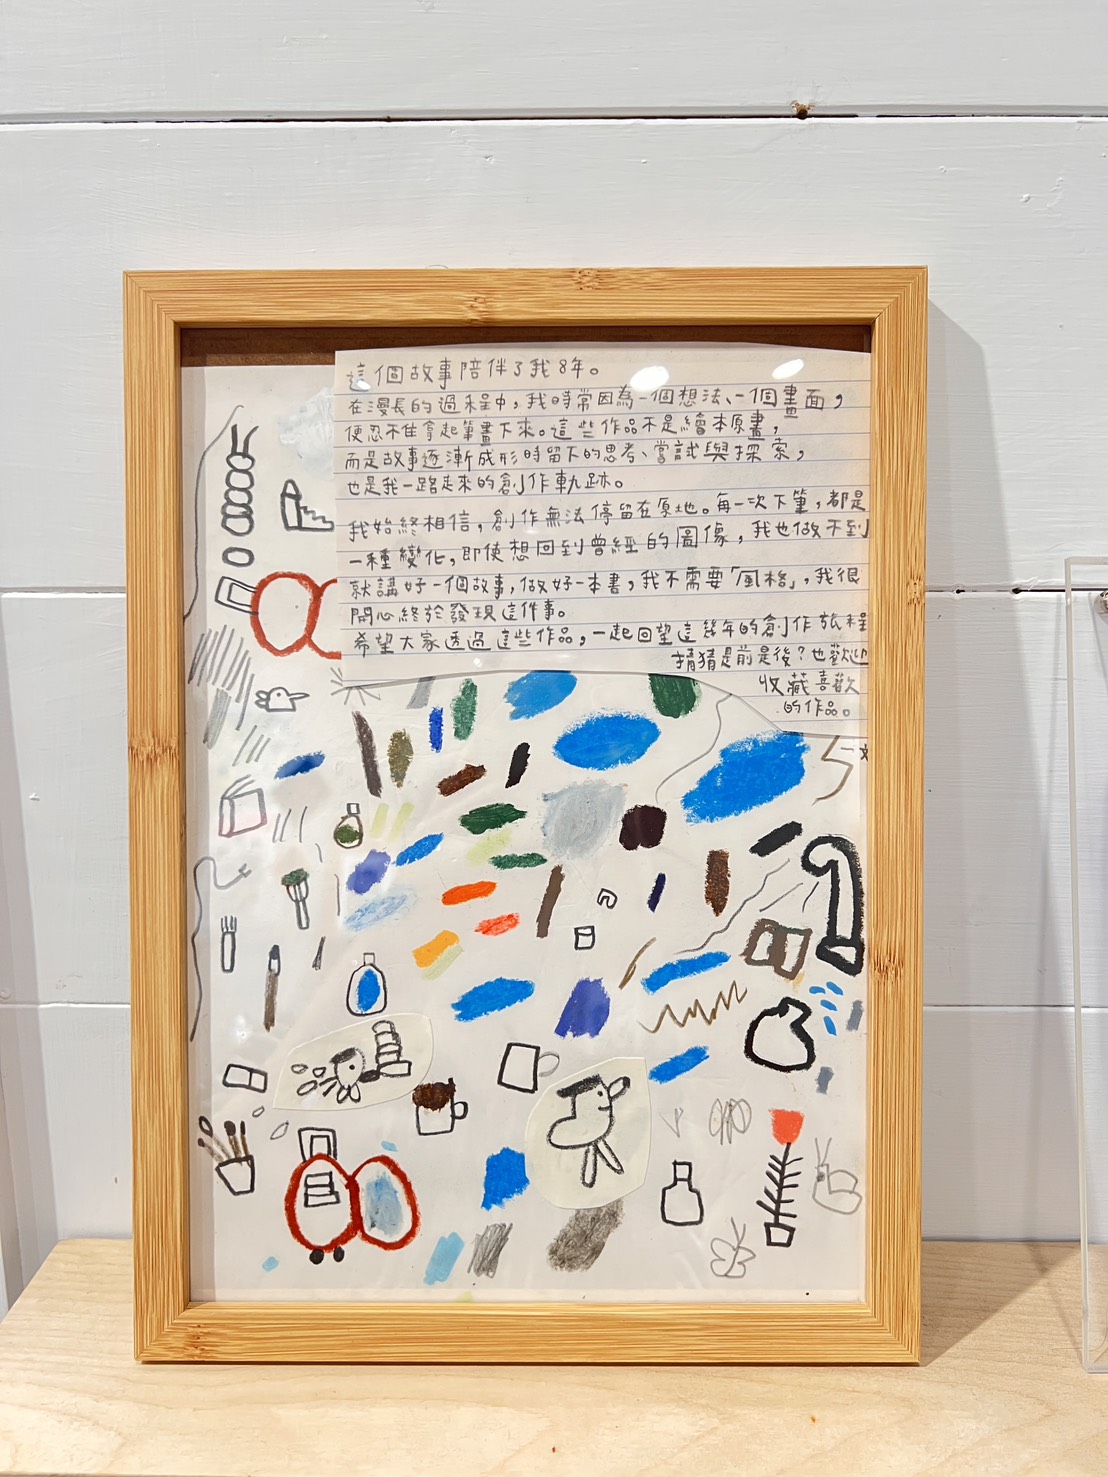 這個故事陪伴了我8年。
在漫長的過程中，我時常因為一個想法、一個畫面，
便忍不住拿起筆畫下來。這些作品不是繪本原畫，
而是故事逐漸成形時留下的思考、嘗試與探索，
也是我一路走來的創作軌跡。
我始終相信，創作無法停留在原地。每一次下筆，都是
一種變化，即使想回到曾經的圖像，我也做不到
就講好一個故事，做好一本書，我不需要「風格」，我很
開心終於發現這件事。
希望大家透過這些作品，一起回望這幾年的創作旅程
猜猜是前是後？也歡迎
收藏喜歡
的作品。